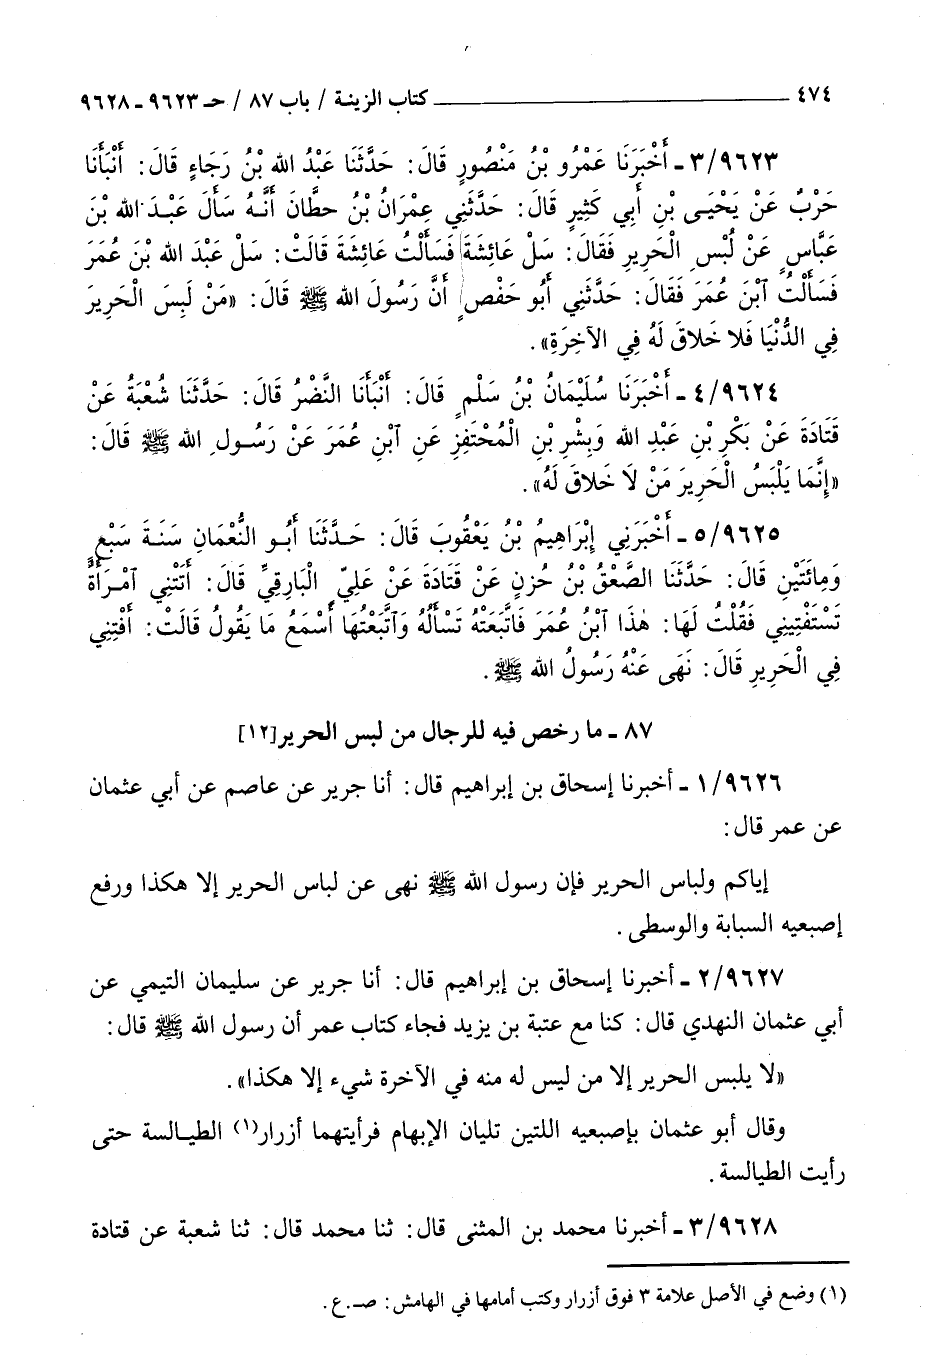 ٤٧٤ كتاب الزينة / باب ٨٧ / حـ ٩٦٢٣ - ٩٦٢٨
٣/٩٦٢٣ - أَخْبَرَنَا عَمْرُو بْنُ مَنْصُورٍ قَالَ: حَدَّثَنَا عَبْدُ الله بْنُ رَجَاءٍ قَالَ: أَنْبَأَنَا
حَرْبٌ عَنْ يَحْيَى بْنِ أَبِي كَثِيرٍ قَالَ: حَدَّثَنِي عِمْرَانُ بْنُ حطَّان أَنَّهُ سَأَلَ عَبْدَ الله بْنَ
عَبَّاسٍ عَنْ لُبْسِ الْحَرِيرِ فَقَالَ: سَلْ عَائِشَةَ فَسَأَلْتُ عَائِشَةَ قَالَتْ: سَلْ عَبْدَ الله بْنَ عُمَرَ
فَسَأَلْتُ ٱبْنَ عُمَرَ فَقَالَ: حَدَّثَنِي أَبُو حَفْصٍ أَنَّ رَسُولَ الله ﷺ قَالَ: «مَنْ لَبِسَ الْحَرِيرَ
فِي الدُّنْيَا فَلا خَلاقَ لَهُ فِي الآخِرَةِ».
٤/٩٦٢٤ - أَخْبَرَنَا سُلَيْمَانُ بْنُ سَلْمٍ قَالَ: أَنْبَأَنَا النَّضْرُ قَالَ: حَدَّثَنَا شُعْبَةُ عَنْ
قَتَادَةَ عَنْ بَكْرِ بْنِ عَبْدِ الله وَبِشْرِ بْنِ الْمُحْتَفِزِ عَنِ ٱبْنِ عُمَرَ عَنْ رَسُولِ الله ﷺ قَالَ:
«إِنَّمَا يَلْبَسُ الْحَرِيرَ مَنْ لَا خَلاقَ لَهُ».
٥/٩٦٢٥ - أَخْبَرَنِي إِبْرَاهِيمُ بْنُ يَعْقُوبَ قَالَ: حَدَّثَنَا أَبُو النُّعْمَانِ سَنَةَ سَبْعٍ
وَمِائَتَيْنِ قَالَ: حَدَّثَنَا الصَّعْقُ بْنُ حُزنٍ عَنْ قَتَادَةَ عَنْ عَلِيٍّ الْبَارِقِيِّ قَالَ: أَتَتْنِي ٱمْرَأَةٌ
تَسْتَفْتِينِي فَقُلْتُ لَهَا: هٰذَا ٱبْنُ عُمَرَ فَاتَّبَعَتْهُ تَسْأَلُهُ وَٱتَّبَعْتُهَا أَسْمَعُ مَا يَقُولُ قَالَتْ: أَفْتِنِي
فِي الْحَرِيرِ قَالَ: نَهَى عَنْهُ رَسُولُ الله ﷺ.
٨٧ - ما رخص فيه للرجال من لبس الحرير[١٢]
١/٩٦٢٦ - أخبرنا إسحاق بن إبراهيم قال: أنا جرير عن عاصم عن أبي عثمان
عن عمر قال:
إياكم ولباس الحرير فإن رسول الله ﷺ نهى عن لباس الحرير إلا هكذا ورفع
إصبعيه السبابة والوسطى.
٢/٩٦٢٧ - أخبرنا إسحاق بن إبراهيم قال: أنا جرير عن سليمان التيمي عن
أبي عثمان النهدي قال: كنا مع عتبة بن يزيد فجاء كتاب عمر أن رسول الله ﷺ قال:
«لا يلبس الحرير إلا من ليس له منه في الآخرة شيء إلا هكذا».
وقال أبو عثمان بإصبعيه اللتين تليان الإبهام فرأيتهما أزرار(١) الطيالسة حتى
رأيت الطيالسة.
٣/٩٦٢٨ - أخبرنا محمد بن المثنى قال: ثنا محمد قال: ثنا شعبة عن قتادة
(١) وضع في الأصل علامة ٣ فوق أزرار وكتب أمامها في الهامش: صـ.ع.